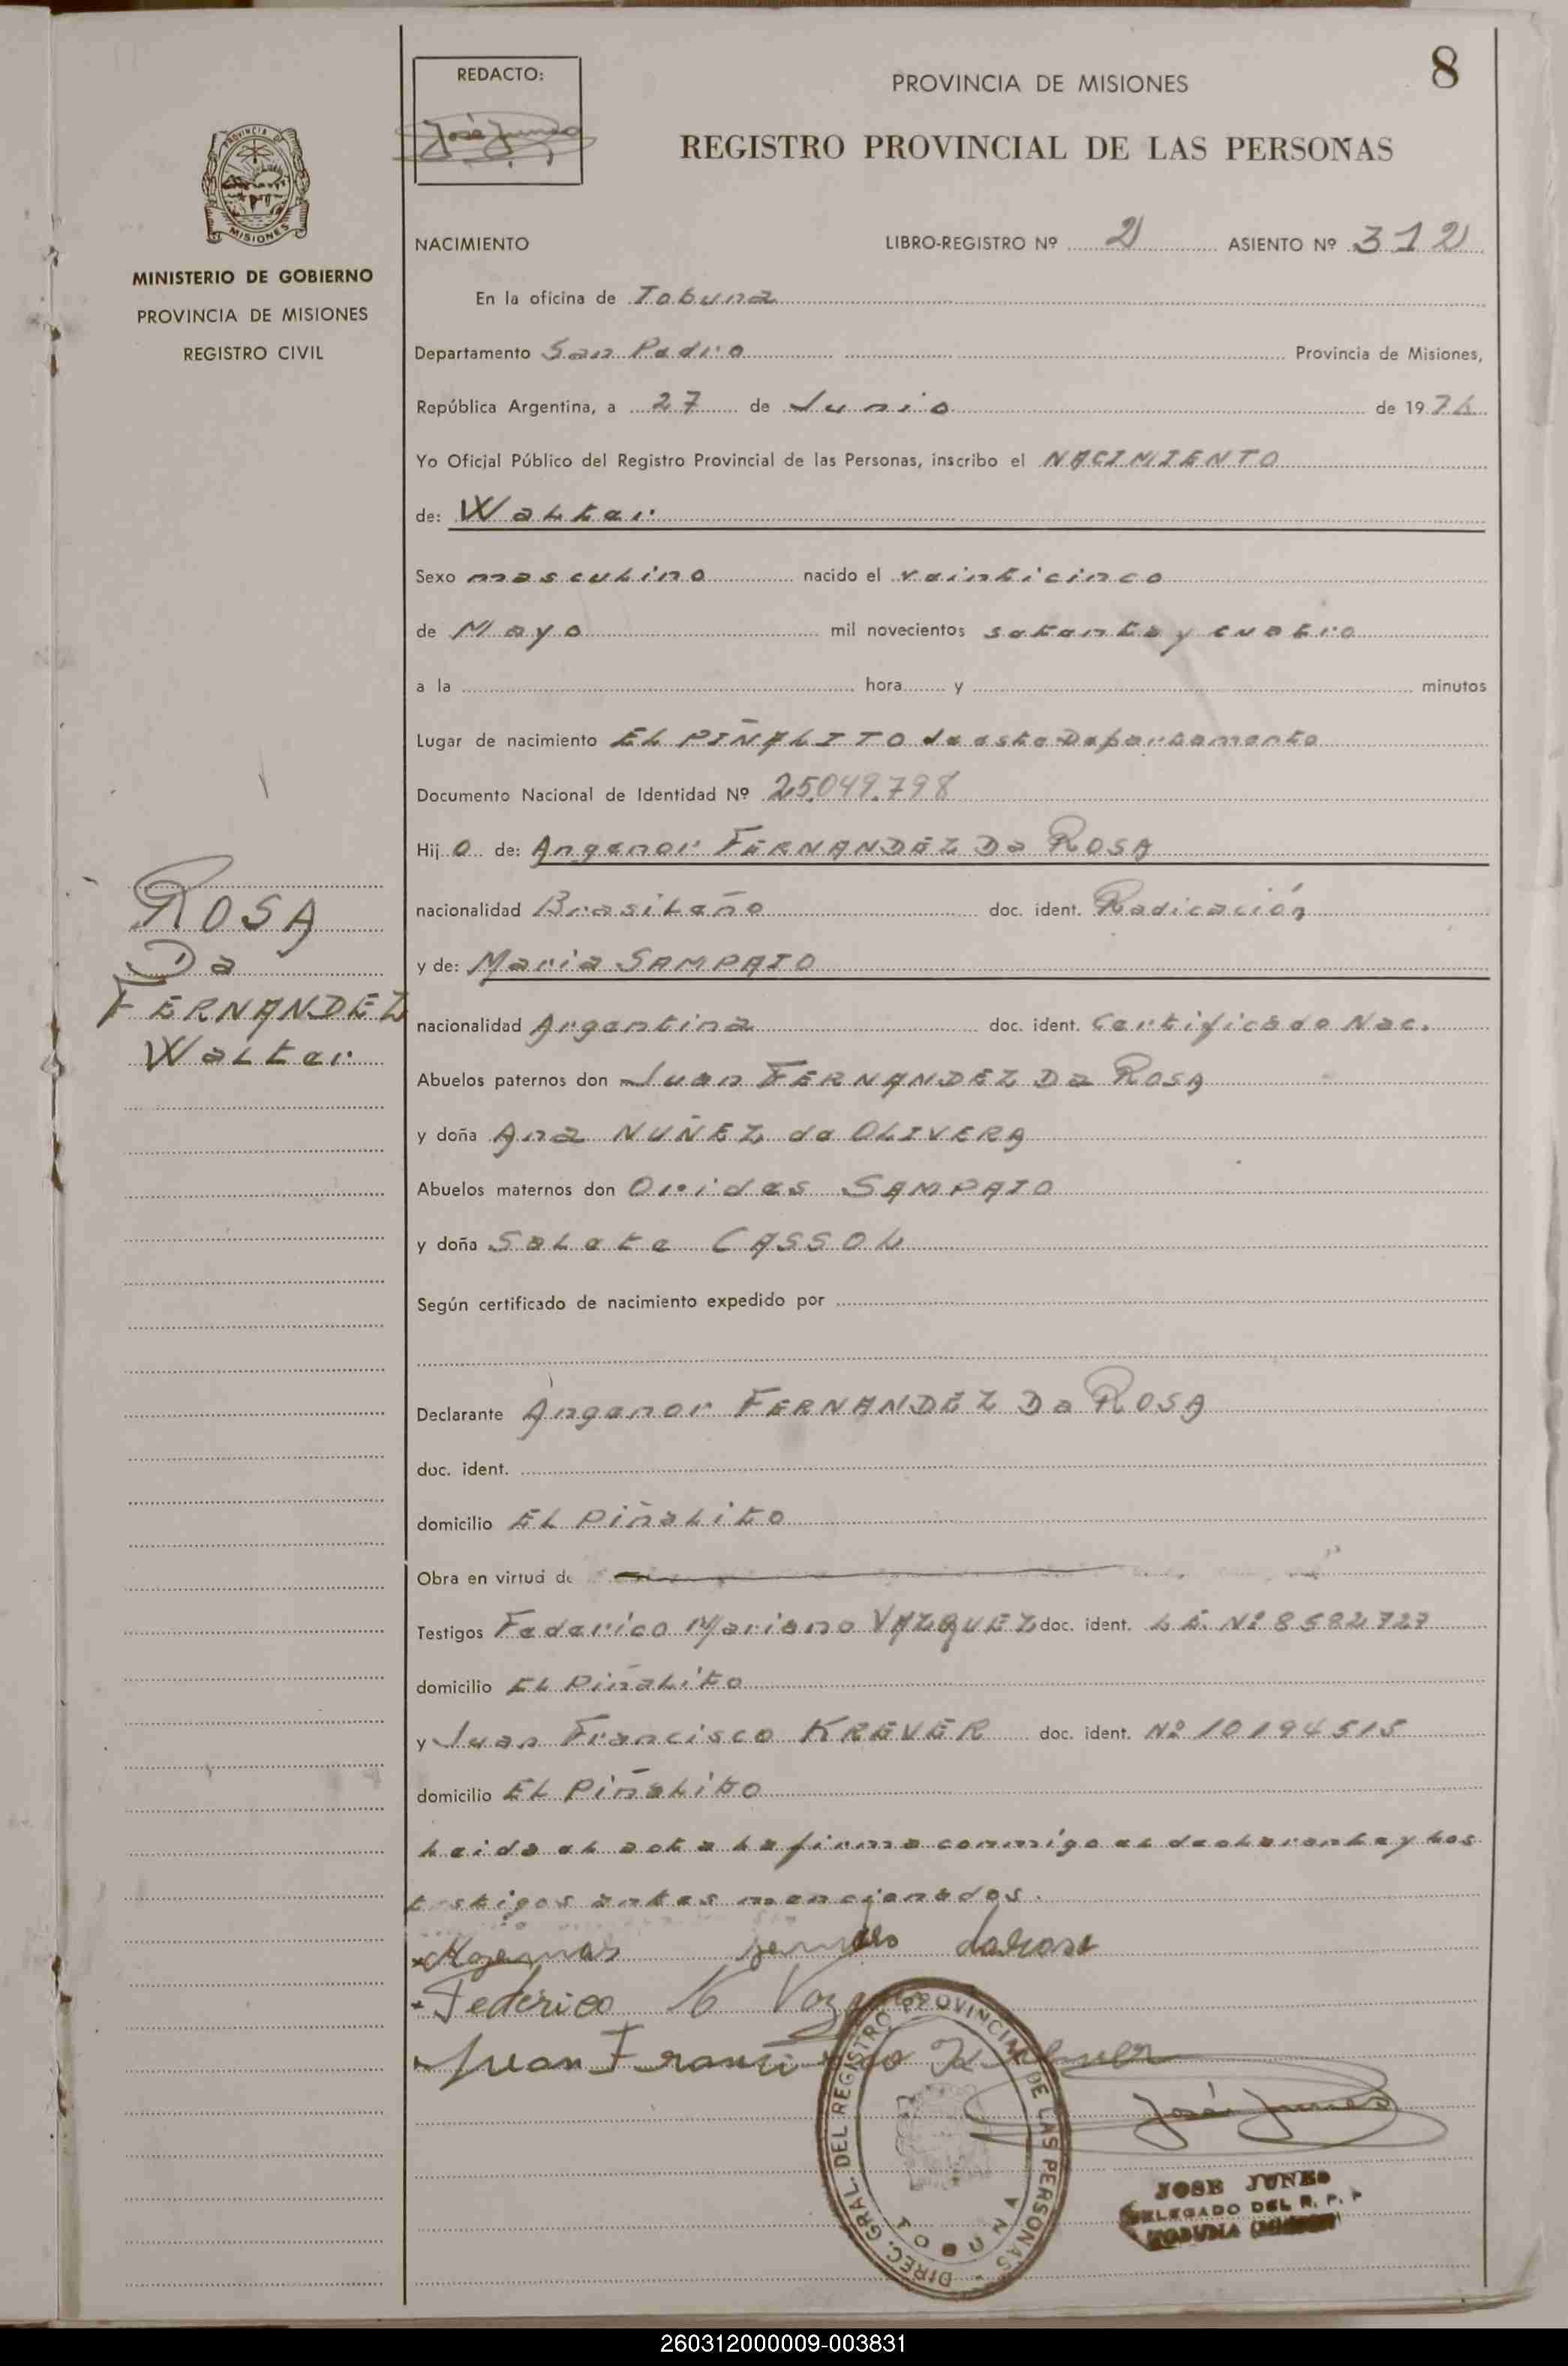 8
REDACTO:
José Junes
PROVINCIA DE MISIONES
REGISTRO PROVINCIAL DE LAS PERSONAS
PROVINCIA DE
MISIONES
MINISTERIO DE GOBIERNO
PROVINCIA DE MISIONES
REGISTRO CIVIL
NACIMIENTO LIBRO-REGISTRO Nº 2 ASIENTO Nº 312
En la oficina de Tobuna
Departamento San Pedro Provincia de Misiones,
República Argentina, a 27 de Junio de 1974
Yo Oficial Público del Registro Provincial de las Personas, inscribo el NACIMIENTO
de: Walter
Sexo masculino nacido el veinticinco
de Mayo mil novecientos setenta y cuatro
a la hora y minutos
Lugar de nacimiento EL PIÑALITO de este Departamento
Documento Nacional de Identidad Nº 25.049.798
Hij o de: Angenor FERNANDEZ Da ROSA
nacionalidad Brasileño doc. ident. Radicación
y de: Maria SAMPAIO
nacionalidad Argentina doc. ident. Certificado Nac.
Abuelos paternos don Juan FERNANDEZ Da ROSA
y doña Ana NUÑEZ de OLIVERA
Abuelos maternos don Orides SAMPAIO
y doña Salete CASSOL
Según certificado de nacimiento expedido por
Declarante Angenor FERNANDEZ Da ROSA
doc. ident.
domicilio El Piñalito
Obra en virtud de
Testigos Federico Mariano VAZQUEZ doc. ident. L.E. Nº 8582727
domicilio El Piñalito
y Juan Francisco KREVER doc. ident. Nº 10194515
domicilio El Piñalito
Leida el acta la firma conmigo el declarante y los
testigos antes mencionados.
ROSA
Da
FERNANDEZ
Walter
darosa
Federico M Vazquez
Juan Francisco
José Junes
DIREC. GRAL. DEL REGISTRO PROVINCIAL DE LAS PERSONAS
TOBUNA
JOSE JUNES
DELEGADO DEL R. P. P
TOBUNA
260312000009-003831